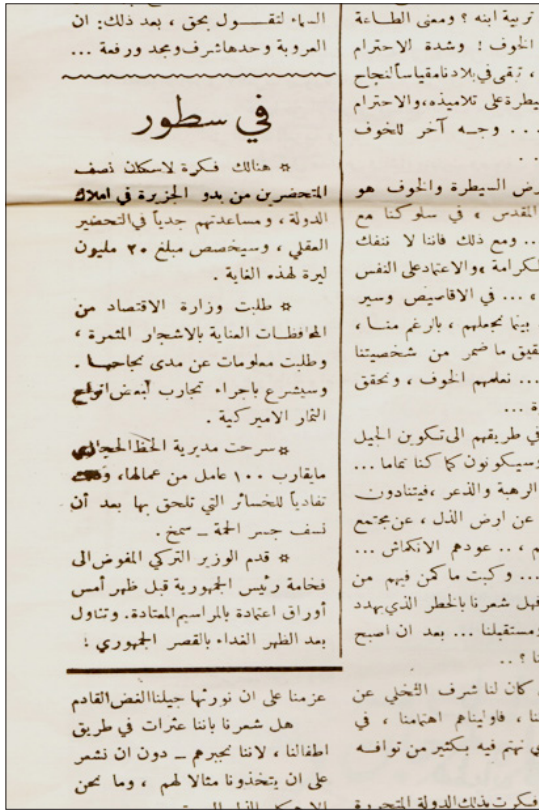 تربية ابنه ؟ ومعنى الطاعة
الخوف ! وشدة الاحترام
، تبقى في بلادنا مقياساً لنجاح
يطرة على تلاميذه، والاحترام
... وجه آخر للخوف
رض السيطرة والخوف هو
المقدس ، في سلوكنا مع
... ومع ذلك فاننا لا ننفك
لكرامة ، والاعتماد على النفس
، ... في الاقاصيص وسير
بينما نجعلهم ، بالرغم منا ،
قيق ما ضمر من شخصيتنا
... نعلمهم الخوف ، ونحقق
ة ...
في طريقهم الى تكوين الجيل
وسيكونون كما كنا تماما ...
الرهبة والذعر ، فيتنادون
عن ارض الذل ، عن مجتمع
م ، .. عودهم الانكماش ...
... وكبت ما كمن فيهم من
فهل شعرنا بالخطر الذي يهدد
ومستقبلنا ... بعد ان اصبح
نا ؟ ..
كان لنا شرف التخلي عن
نا ، فاوليناهم اهتمامنا ، في
ي نهتم فيه بكثير من توافه
فكرت بذلك الدولة المتحررة
السماء لتقول بحق ، بعد ذلك : ان
العروبة وحدها شرف ومجد ورفعة ...
في سطور
* هنالك فكرة لاسكان نصف
المتحضرين من بدو الجزيرة في املاك
الدولة ، ومساعدتهم جدياً في التحضير
العقلي ، وسيخصص مبلغ ٢٠ مليون
ليرة لهذه الغاية .
* طلبت وزارة الاقتصاد من
المحافظات العناية بالاشجار المثمرة ،
وطلبت معلومات عن مدى نجاحها .
وسيشرع باجراء تجارب لبعض انواع
الثمار الاميركية .
* سرحت مديرية الخط الحجازي
مايقارب ١٠٠ عامل من عمالها،
تفادياً للخسائر التي تلحق بها بعد أن
نسف جسر الحمة – سمخ .
* قدم الوزير التركي المفوض الى
فخامة رئيس الجمهورية قبل ظهر أمس
أوراق اعتماده بالمراسيم المعتادة. وتناول
بعد الظهر الغداء بالقصر الجمهوري :
عزمنا على ان نورثها جيلنا الغض القادم
هل شعرنا باننا عثرات في طريق
اطفالنا ، لاننا نجبرهم – دون ان نشعر
على ان يتخذونا مثالا لهم ، وما نحن